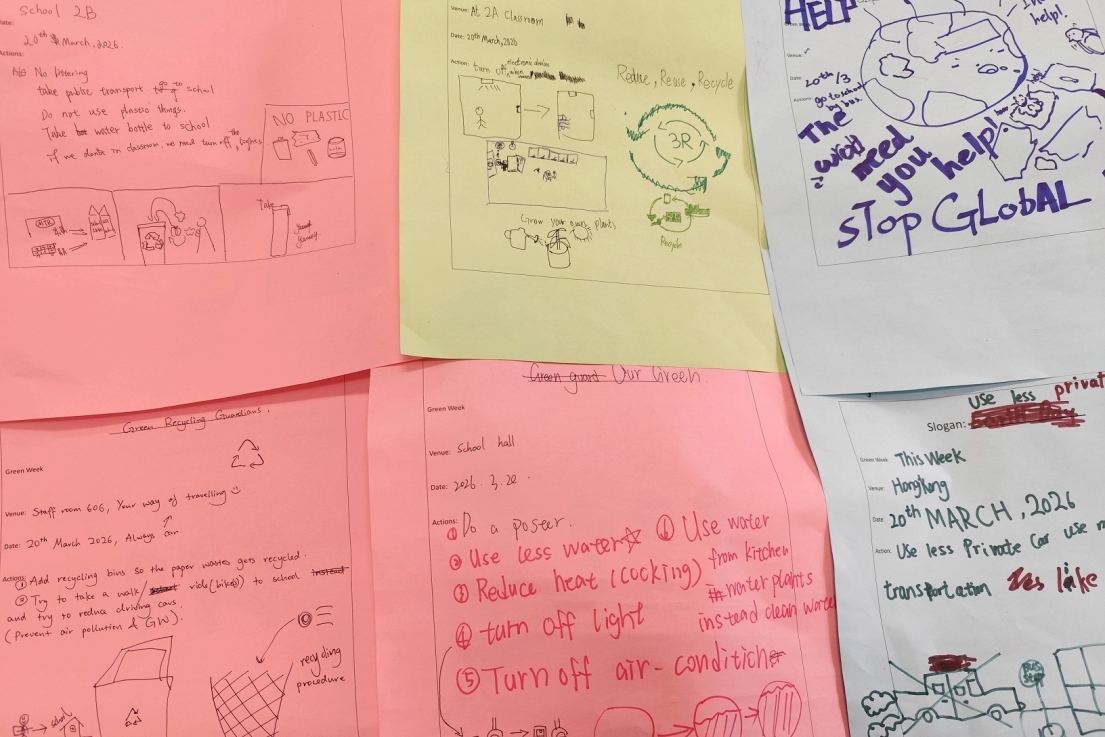 School 2B
Date:
20th March, 2026.
Actions:
No littering
take public transport to school
Do not use plastic things.
Take water bottle to school
If we don't in classroom, we need turn off the lights
NO PLASTIC
Take
Venue: At 2A Classroom
Date: 20th March, 2026
Action: turn off electronic devices when
Reduce, Reuse, Recycle
3R
Grow your own plants
Recycle
HELP
help!
Venue:
Date: 20th/3
Actions: go to school by bus.
The
world need
you help!
STOP GLobAL
Green Recycling Guardians.
Green Week
Venue: Staff room 606, Your way of travelling
Date: 20th March 2026, Always
Actions: ① Add recycling bins so the paper wastes gets recycled.
② Try to take a walk/ ride (bikes) to school instead
and try to reduce driving cars.
(Prevent air pollution & GW).
recycling
procedure
school
Green guard Our Green
Green Week
Venue: School hall
Date: 2026.3.20.
Actions: ① Do a poster.
② Use less water
③ Reduce heat (cooking)
④ turn off light
⑤ Turn off air-condition
⑥ Use water
from kitchen
in water plants
instead clean water
use less privat
Slogan:
Green Week This Week
Venue: HongKong
Date: 20th MARCH, 2026
Action: Use less Private Car use m
transportation like
BUS
STOP